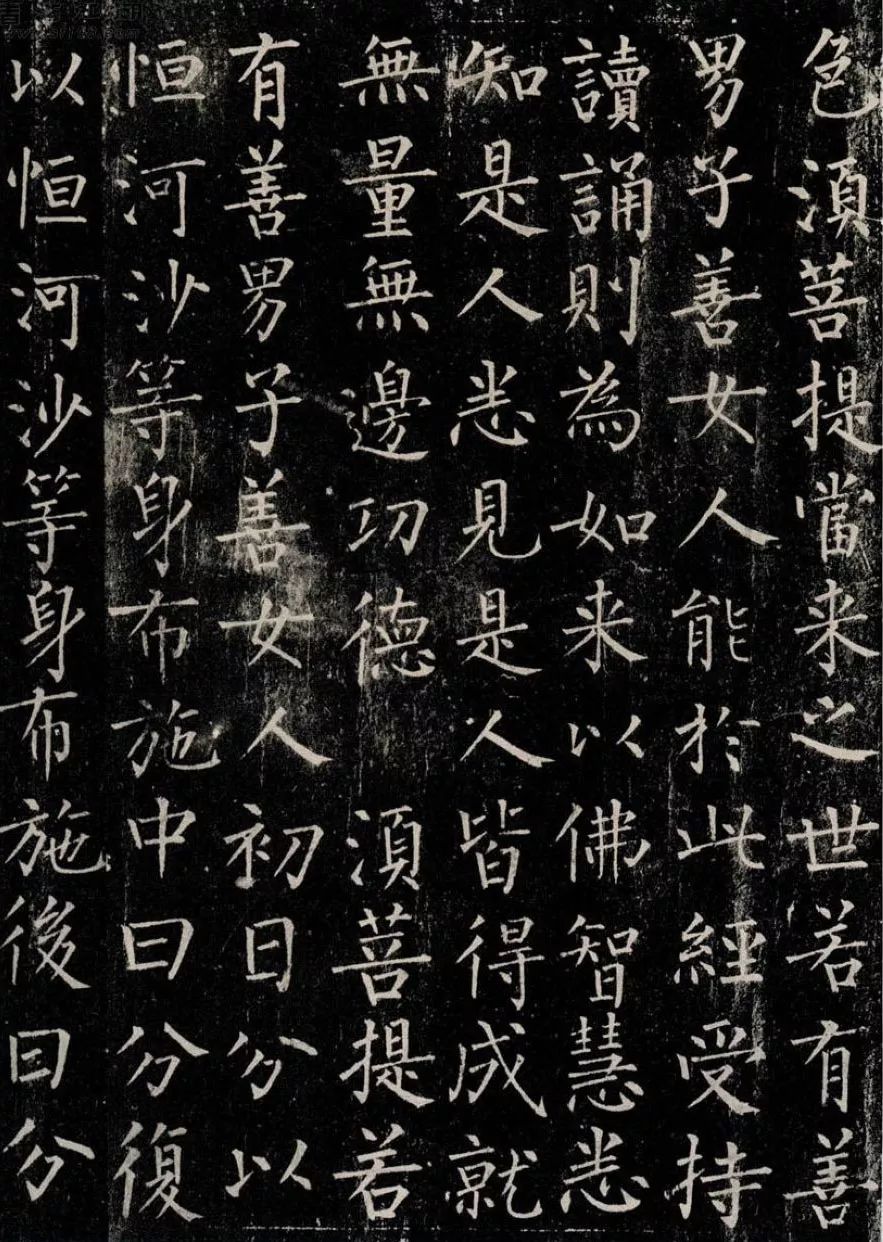 色須菩提當来之世若有善
男子善女人能於此經受持
讀誦則為如来以佛智慧悉
知是人悉見是人皆得成就
無量無邊功德 須菩提若
有善男子善女人初日分以
恒河沙等身布施中日分復
以恒河沙等身布施後日分